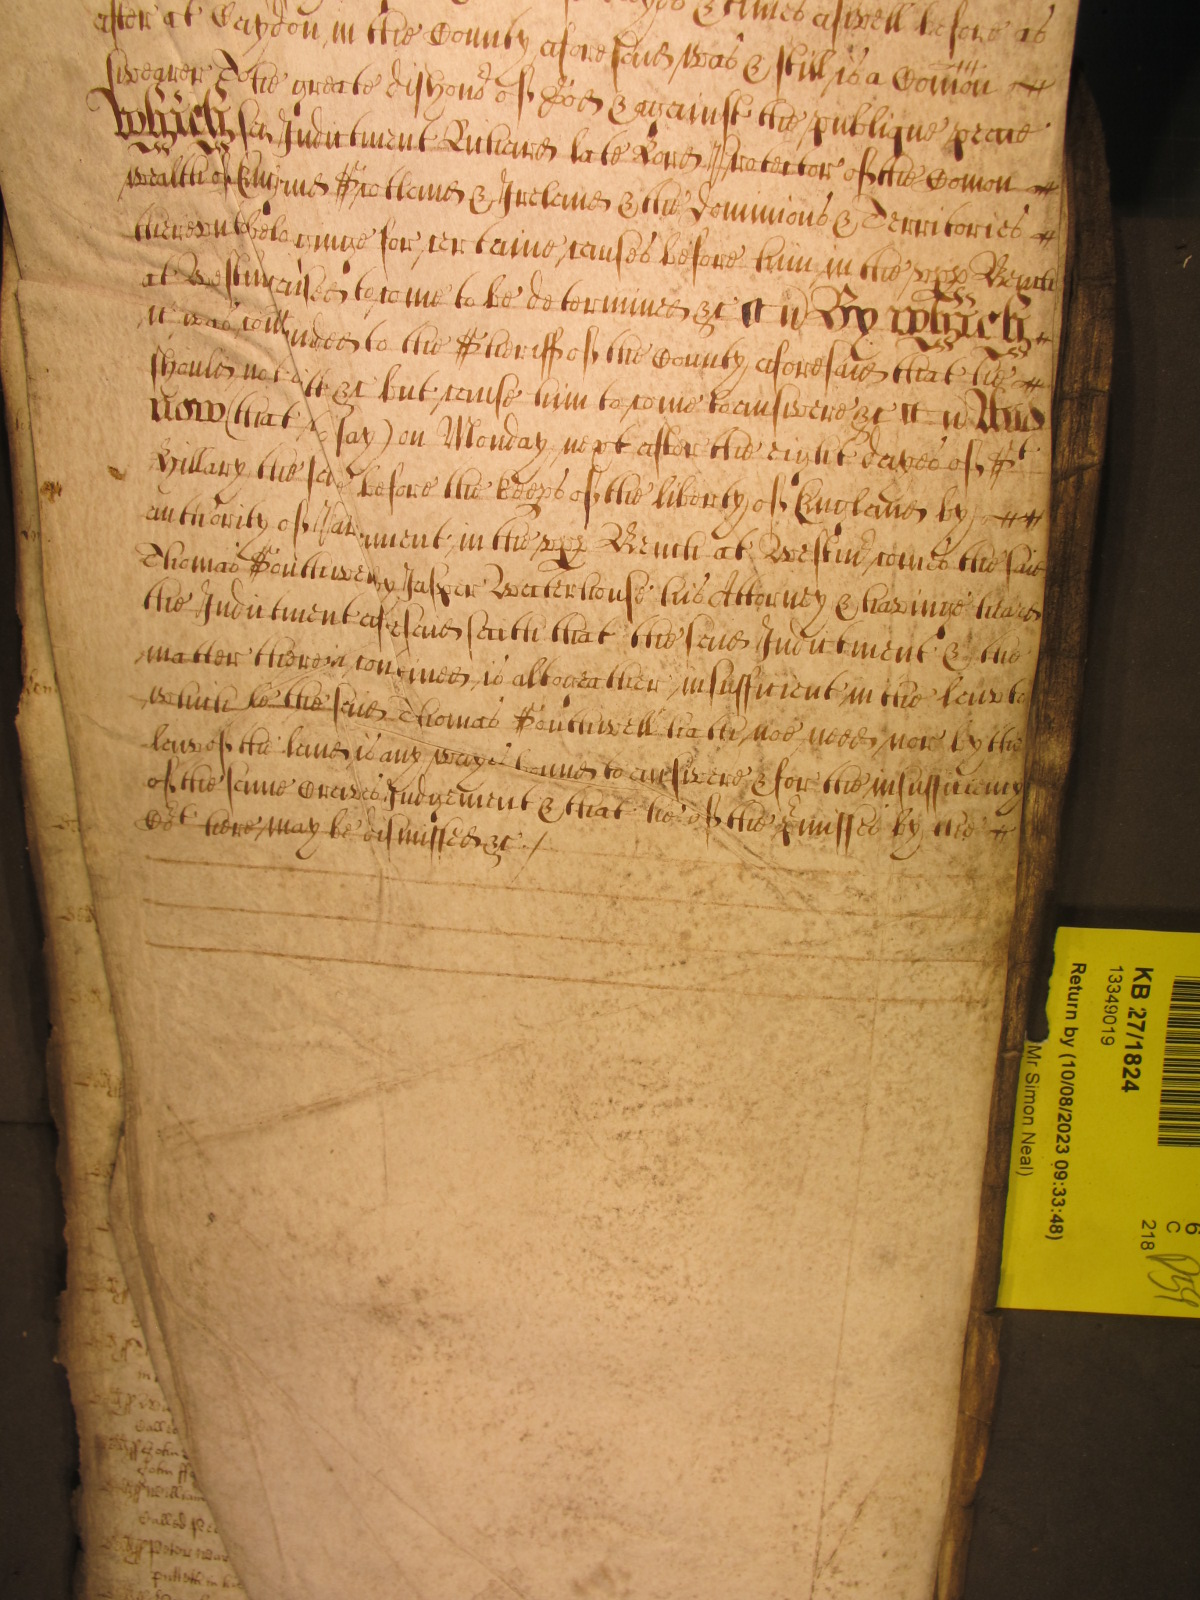 dayes & times aswell before as
after at Craydon in the County aforesaid was & still is a Comõn
swearer To the greate dishonor of God & against the publique peace
Which sd Indictment Richard late Lord Protector of the Comon
wealth of England Scotland & Ireland & the Dominions & Territories
thereunto belonginge for certaine causes before him in the upp Bench
at Westm caused to come to be determined &c And By which
it was comanded to the Sheriff of the County aforesaid that he
should not omitt &c but cause him to come to answere &c And
now (that is to say) on Monday next after the eight dayes of St
Hillary the same before the keeps of the liberty of England by
authority of Parliament in the upp Bench at Westm comes the said
Thomas Southwell by Jasper Waterhouse his Attorney & havinge heard
the Indictment aforesaid saith that the said Indictment & the
matter therein conteined is altogeather insufficient in the law to
which he the said Thomas Southwell hath noe need nor by the
law of the land is any wayes bound to answere & for the insufficiency
of the same craves Judgement & that he of the pmisses by the
Cort here may be dismissed &c /
KB 27/1824
13349019
Return by (10/08/2023 09:33:48)
Mr Simon Neal)
6
C
218